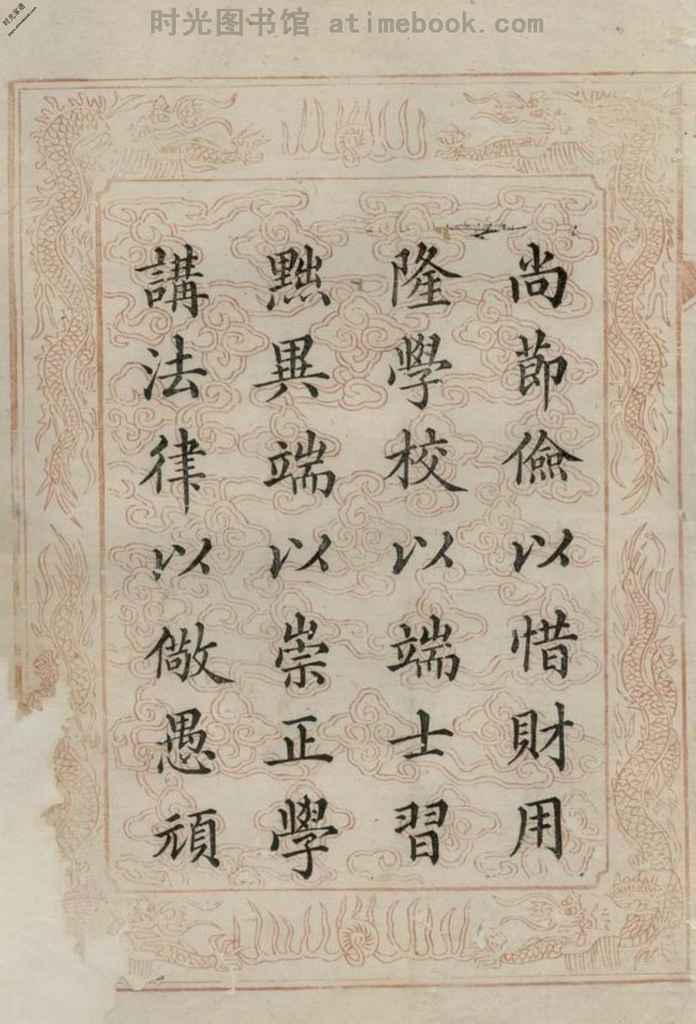 时光图书馆 atimebook.com
尚節儉以惜財用
隆學校以端士習
黜異端以崇正學
講法律以儆愚頑